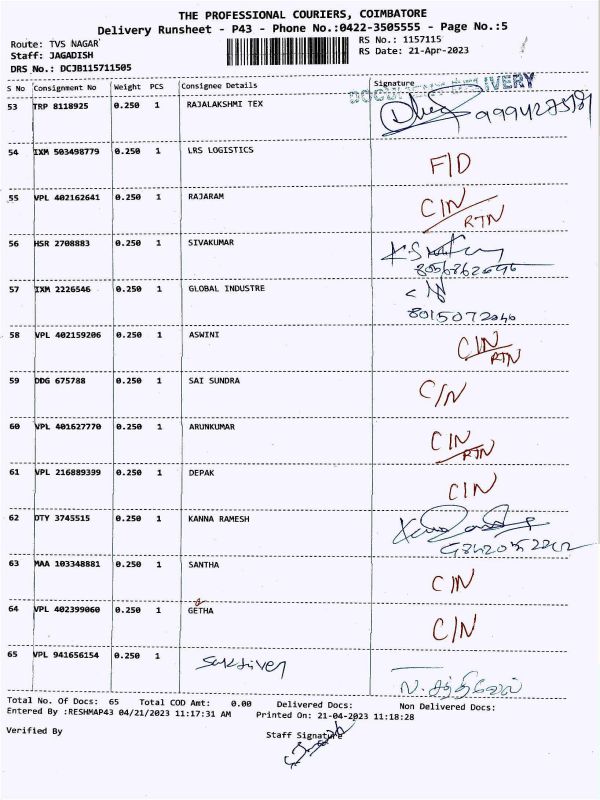 THE PROFESSIONAL COURIERS, COIMBATORE
Delivery Runsheet - P43 - Phone No.:0422-3505555 - Page No.:5
Route: TVS NAGAR RS No.: 1157115
Staff: JAGADISH RS Date: 21-Apr-2023
DRS No.: DCJB115711505
S No Consignment No Weight PCS Consignee Details Signature
DELIVERY
53 TRP 8118925 0.250 1 RAJALAKSHMI TEX
54 IXM 503498779 0.250 1 LRS LOGISTICS F/D
55 VPL 402162641 0.250 1 RAJARAM C/N
RTN
56 HSR 2708883 0.250 1 SIVAKUMAR
57 IXM 2226546 0.250 1 GLOBAL INDUSTRE
58 VPL 402159206 0.250 1 ASWINI C/N
RTN
59 DDG 675788 0.250 1 SAI SUNDRA C/N
60 VPL 401627770 0.250 1 ARUNKUMAR C/N
RTN
61 VPL 216889399 0.250 1 DEPAK C/N
62 DTY 3745515 0.250 1 KANNA RAMESH
63 MAA 103348881 0.250 1 SANTHA C/N
64 VPL 402399060 0.250 1 GETHA C/N
65 VPL 941656154 0.250 1 Sakthivel ந. சக்திவேல்
Total No. Of Docs: 65 Total COD Amt: 0.00 Delivered Docs: Non Delivered Docs:
Entered By :RESHMAP43 04/21/2023 11:17:31 AM Printed On: 21-04-2023 11:18:28
Verified By Staff Signature